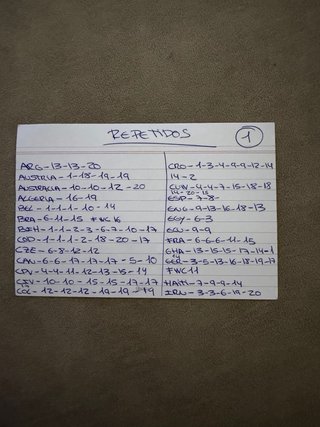 REPETIDOS
1
ARG-13-13-20
AUSTRIA-1-18-19-19
AUSTRALIA-10-10-12-20
ALGERIA-16-19
BEL-1-1-1-10-14
BRA-6-11-15 FWC16
BIH-1-1-2-3-6-7-10-17
COD-1-1-1-2-18-20-17
CZE-6-8-12-12
CAN-6-6-17-17-17-5-10
CPV-4-4-11-12-13-15-14
CIV-10-10-15-15-17-17
COL-12-12-12-19-19-19
CRO-1-3-4-9-9-12-14
14-2
CUW-4-4-7-15-18-18
14-20-15
ESP-7-8-
ENG-9-13-16-18-13
EGY-6-3
ECU-9-9
FRA-6-6-6-11-15
GHA-13-15-15-17-14-1
GER-3-5-13-16-18-19-17
FWC11
HAITI-7-9-9-14
IRN-3-3-6-19-20